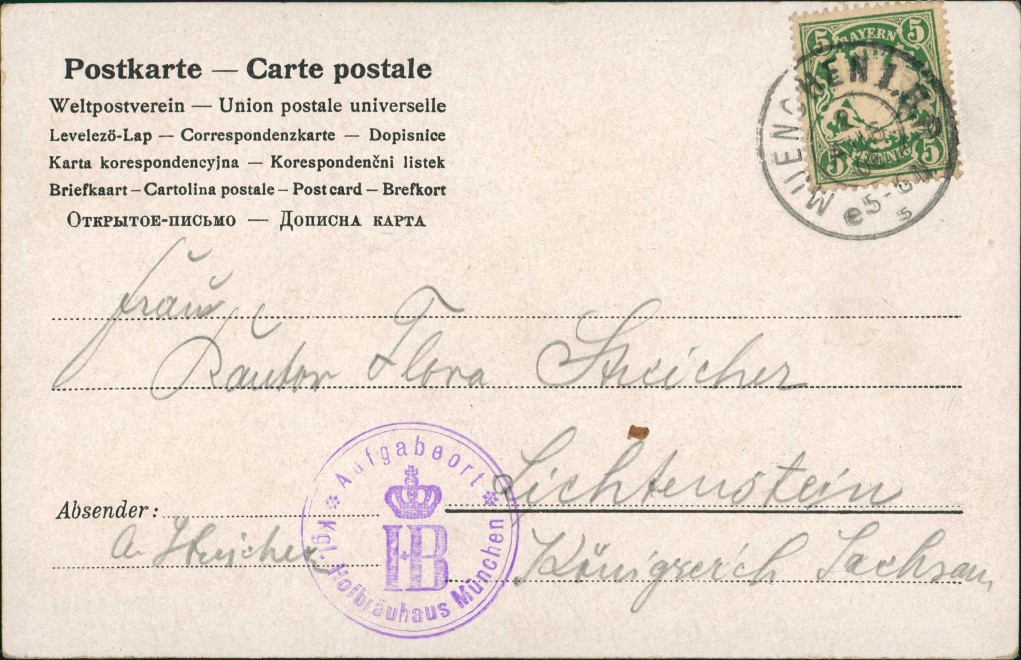 Postkarte — Carte postale
Weltpostverein — Union postale universelle
Levelező-Lap — Correspondenzkarte — Dopisnice
Karta korespondencyjna — Korespondenčni listek
Briefkaart – Cartolina postale – Post card – Brefkort
Открытое-письмо — Дописна карта
5 BAYERN 5
5 PFENNIG 5
MUENCHEN 1.B.P.
5-6N
Frau
Kantor Flora Streicher
Lichtenstein
Königreich Sachsen
Absender:
A. Streicher
Aufgabeort
HB
Kgl. Hofbräuhaus München